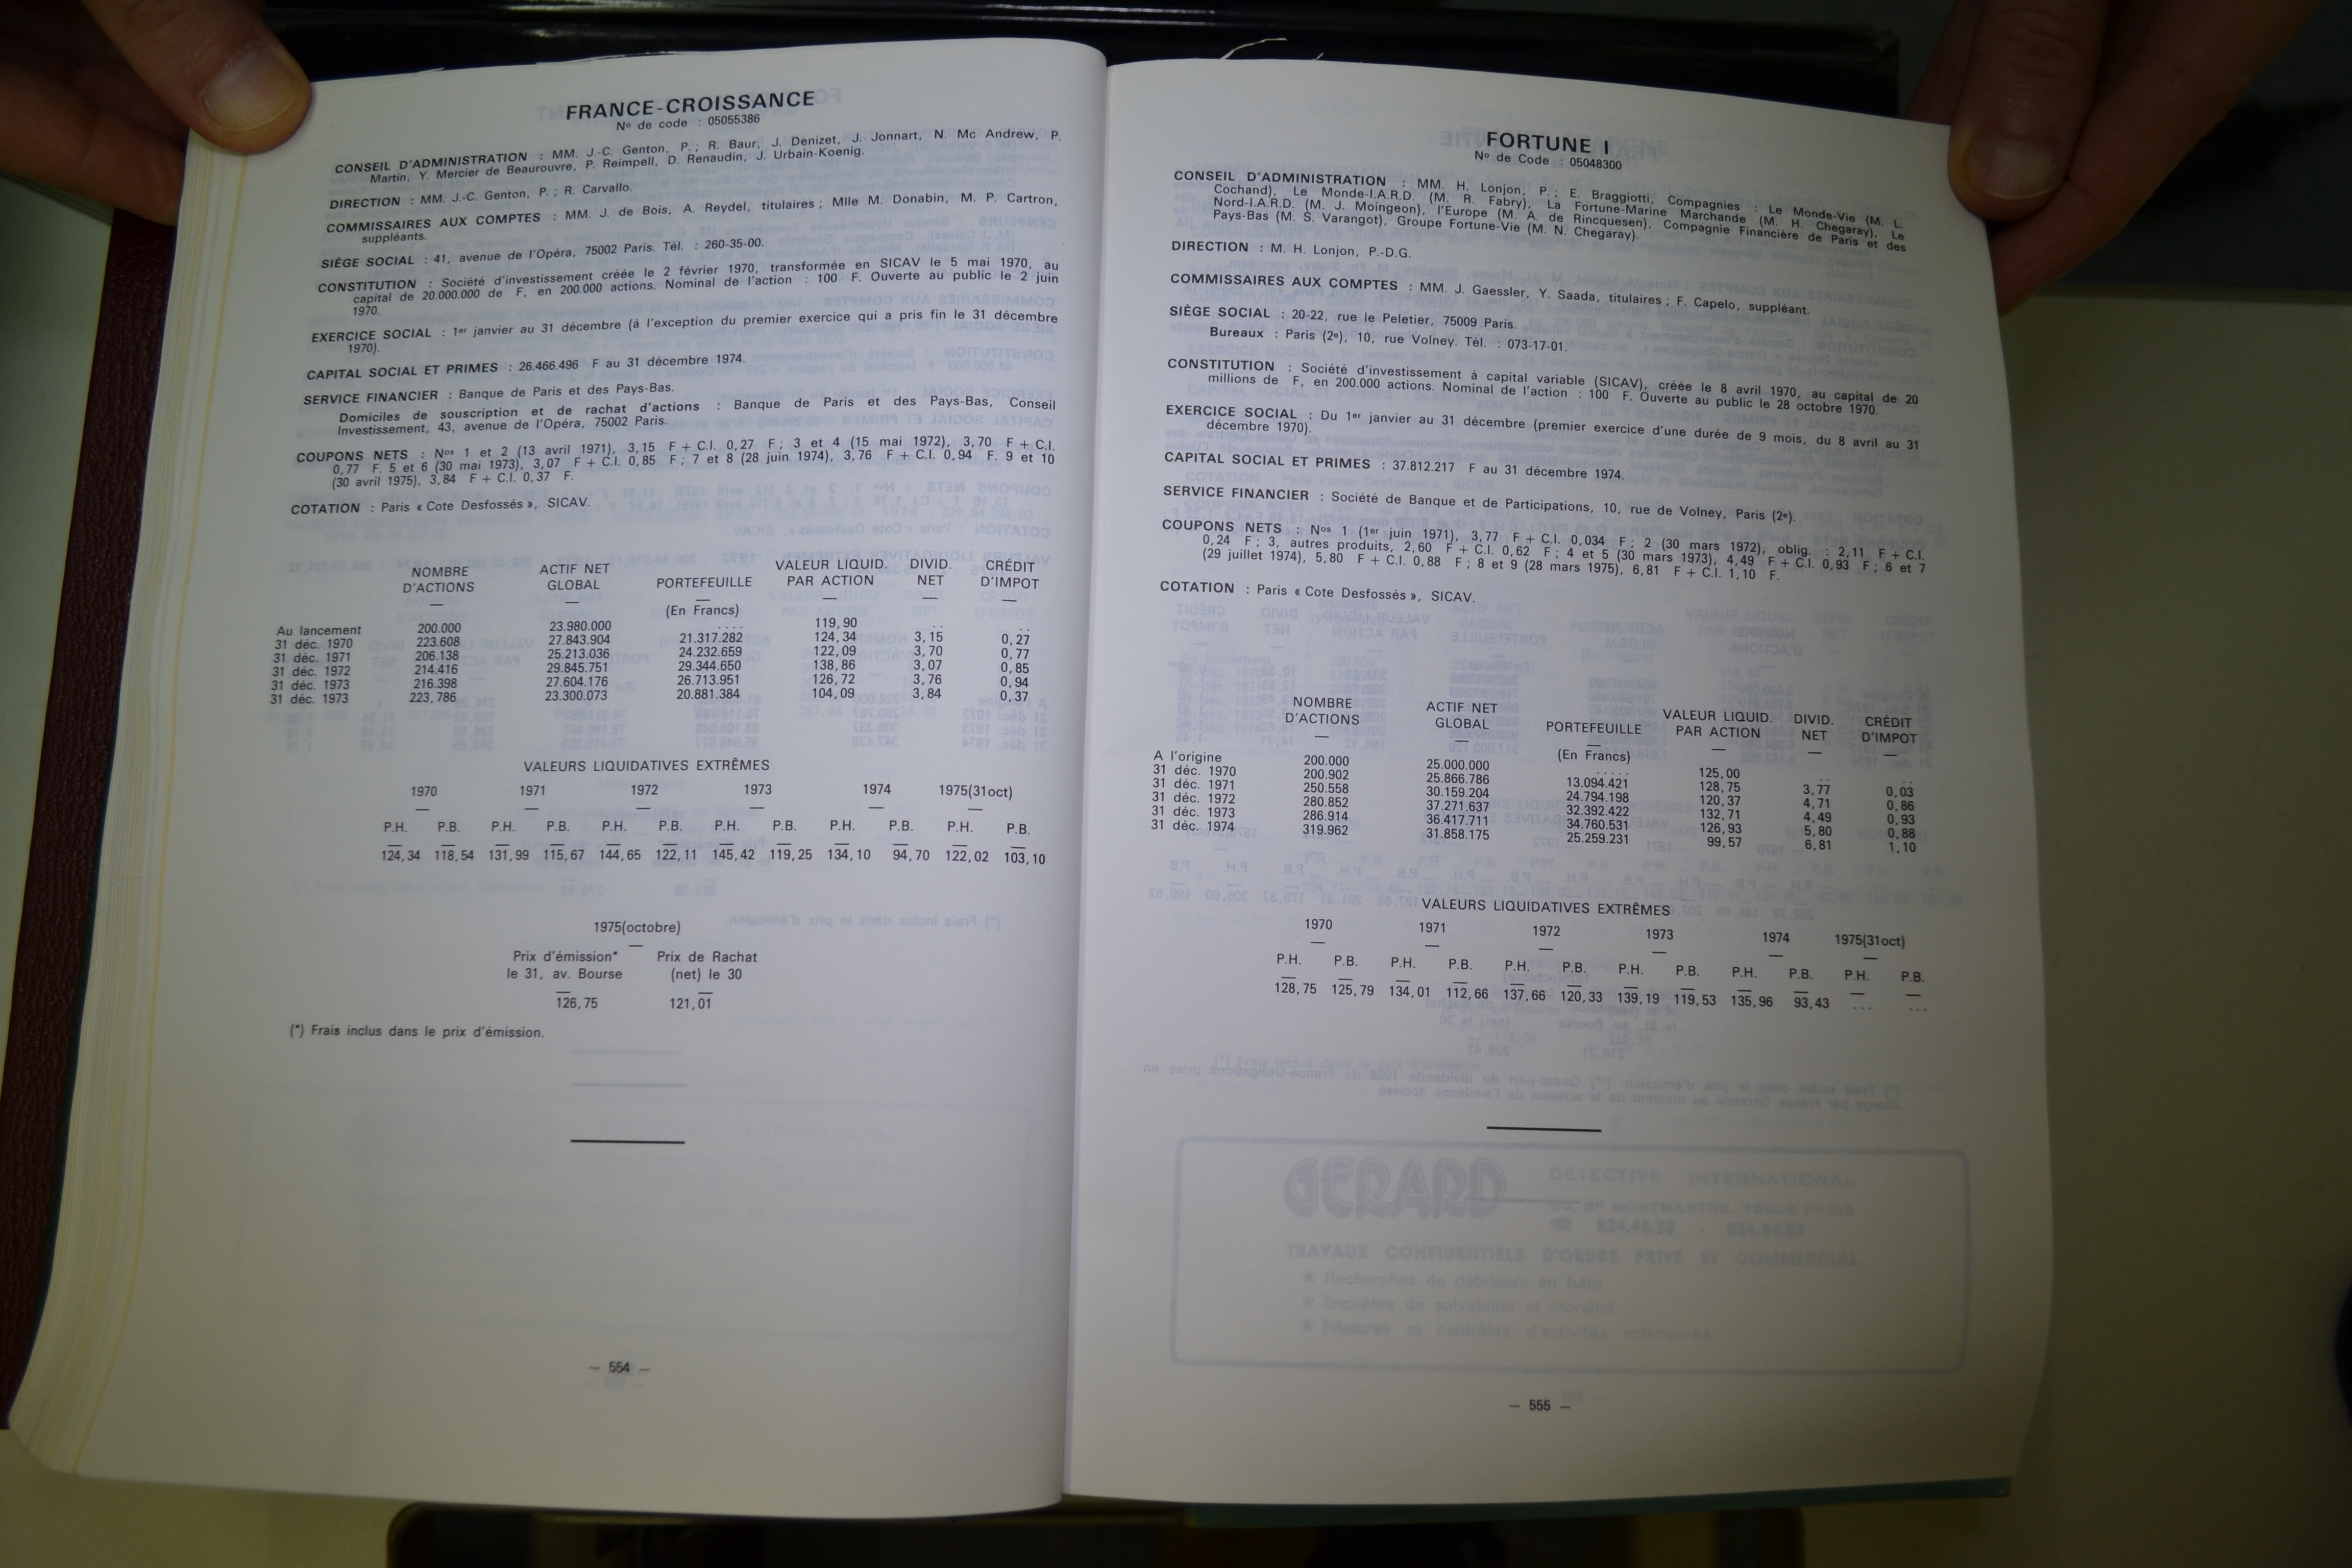 FRANCE-CROISSANCE
Nº de code : 05055386
CONSEIL D'ADMINISTRATION : MM. J.-C. Genton, P. ; R. Baur, J. Denizet, J. Jonnart, N. Mc Andrew, P.
Martin, Y. Mercier de Beaurouvre, P. Reimpell, D. Renaudin, J. Urbain-Koenig.
DIRECTION : MM. J.-C. Genton, P. ; R. Carvallo.
COMMISSAIRES AUX COMPTES : MM. J. de Bois, A. Reydel, titulaires ; Mlle M. Donabin, M. P. Cartron,
suppléants.
SIÈGE SOCIAL : 41, avenue de l'Opéra, 75002 Paris. Tél. : 260-35-00.
CONSTITUTION : Société d'investissement créée le 2 février 1970, transformée en SICAV le 5 mai 1970, au
capital de 20.000.000 de F, en 200.000 actions. Nominal de l'action : 100 F. Ouverte au public le 2 juin
1970.
EXERCICE SOCIAL : 1er janvier au 31 décembre (à l'exception du premier exercice qui a pris fin le 31 décembre
1970).
CAPITAL SOCIAL ET PRIMES : 26.466.496 F au 31 décembre 1974.
SERVICE FINANCIER : Banque de Paris et des Pays-Bas.
Domiciles de souscription et de rachat d'actions : Banque de Paris et des Pays-Bas, Conseil
Investissement, 43, avenue de l'Opéra, 75002 Paris.
COUPONS NETS : Nos 1 et 2 (13 avril 1971), 3,15 F + C.I. 0,27 F ; 3 et 4 (15 mai 1972), 3,70 F + C.I.
0,77 F. 5 et 6 (30 mai 1973), 3,07 F + C.I. 0,85 F ; 7 et 8 (28 juin 1974), 3,76 F + C.I. 0,94 F. 9 et 10
(30 avril 1975), 3,84 F + C.I. 0,37 F.
COTATION : Paris « Cote Desfossés », SICAV.
NOMBRE ACTIF NET VALEUR LIQUID. DIVID. CRÉDIT
D'ACTIONS GLOBAL PORTEFEUILLE PAR ACTION NET D'IMPOT
— — — — — —
(En Francs)
Au lancement 200.000 23.980.000 .... 119,90 .. ..
31 déc. 1970 223.608 27.843.904 21.317.282 124,34 3,15 0,27
31 déc. 1971 206.138 25.213.036 24.232.659 122,09 3,70 0,77
31 déc. 1972 214.416 29.845.751 29.344.650 138,86 3,07 0,85
31 déc. 1973 216.398 27.604.176 26.713.951 126,72 3,76 0,94
31 déc. 1973 223,786 23.300.073 20.881.384 104,09 3,84 0,37
VALEURS LIQUIDATIVES EXTRÊMES
1970 1971 1972 1973 1974 1975(31oct)
— — — — — —
P.H. P.B. P.H. P.B. P.H. P.B. P.H. P.B. P.H. P.B. P.H. P.B.
— — — — — — — — — — — —
124,34 118,54 131,99 115,67 144,65 122,11 145,42 119,25 134,10 94,70 122,02 103,10
1975(octobre)
—
Prix d'émission* Prix de Rachat
le 31, av. Bourse (net) le 30
— —
126,75 121,01
(*) Frais inclus dans le prix d'émission.
— 554 —
FORTUNE I
Nº de Code : 05048300
CONSEIL D'ADMINISTRATION : MM. H. Lonjon, P. ; E. Braggiotti, Compagnies : Le Monde-Vie (M. L.
Cochand), Le Monde-I.A.R.D. (M. R. Fabry), La Fortune-Marine Marchande (M. H. Chegaray), Le
Nord-I.A.R.D. (M. J. Moingeon), l'Europe (M. A. de Rincquesen), Compagnie Financière de Paris et des
Pays-Bas (M. S. Varangot), Groupe Fortune-Vie (M. N. Chegaray).
DIRECTION : M. H. Lonjon, P.-D.G.
COMMISSAIRES AUX COMPTES : MM. J. Gaessler, Y. Saada, titulaires ; F. Capelo, suppléant.
SIÈGE SOCIAL : 20-22, rue le Peletier, 75009 Paris.
Bureaux : Paris (2e), 10, rue Volney. Tél. : 073-17-01.
CONSTITUTION : Société d'investissement à capital variable (SICAV), créée le 8 avril 1970, au capital de 20
millions de F, en 200.000 actions. Nominal de l'action : 100 F. Ouverte au public le 28 octobre 1970.
EXERCICE SOCIAL : Du 1er janvier au 31 décembre (premier exercice d'une durée de 9 mois, du 8 avril au 31
décembre 1970).
CAPITAL SOCIAL ET PRIMES : 37.812.217 F au 31 décembre 1974.
SERVICE FINANCIER : Société de Banque et de Participations, 10, rue de Volney, Paris (2e).
COUPONS NETS : Nos 1 (1er juin 1971), 3,77 F + C.I. 0,034 F ; 2 (30 mars 1972), oblig. : 2,11 F + C.I.
0,24 F ; 3, autres produits, 2,60 F + C.I. 0,62 F ; 4 et 5 (30 mars 1973), 4,49 F + C.I. 0,93 F ; 6 et 7
(29 juillet 1974), 5,80 F + C.I. 0,88 F ; 8 et 9 (28 mars 1975), 6,81 F + C.I. 1,10 F.
COTATION : Paris « Cote Desfossés », SICAV.
NOMBRE ACTIF NET VALEUR LIQUID. DIVID. CRÉDIT
D'ACTIONS GLOBAL PORTEFEUILLE PAR ACTION NET D'IMPOT
— — — — — —
(En Francs)
A l'origine 200.000 25.000.000 ..... 125,00 .. ..
31 déc. 1970 200.902 25.866.786 13.094.421 128,75 3,77 0,03
31 déc. 1971 250.558 30.159.204 24.794.198 120,37 4,71 0,86
31 déc. 1972 280.852 37.271.637 32.392.422 132,71 4,49 0,93
31 déc. 1973 286.914 36.417.711 34.760.531 126,93 5,80 0,88
31 déc. 1974 319.962 31.858.175 25.259.231 99,57 6,81 1,10
VALEURS LIQUIDATIVES EXTRÊMES
1970 1971 1972 1973 1974 1975(31oct)
— — — — — —
P.H. P.B. P.H. P.B. P.H. P.B. P.H. P.B. P.H. P.B. P.H. P.B.
— — — — — — — — — — — —
128,75 125,79 134,01 112,66 137,66 120,33 139,19 119,53 135,96 93,43 ... ...
GERARD
DETECTIVE INTERNATIONAL
TRAVAUX CONFIDENTIELS D'ORDRE PRIVE ET COMMERCIAL
★ Recherches de débiteurs en fuite
★ Enquêtes de solvabilité et moralité
★ Filatures et contrôles d'activités extérieures
— 555 —